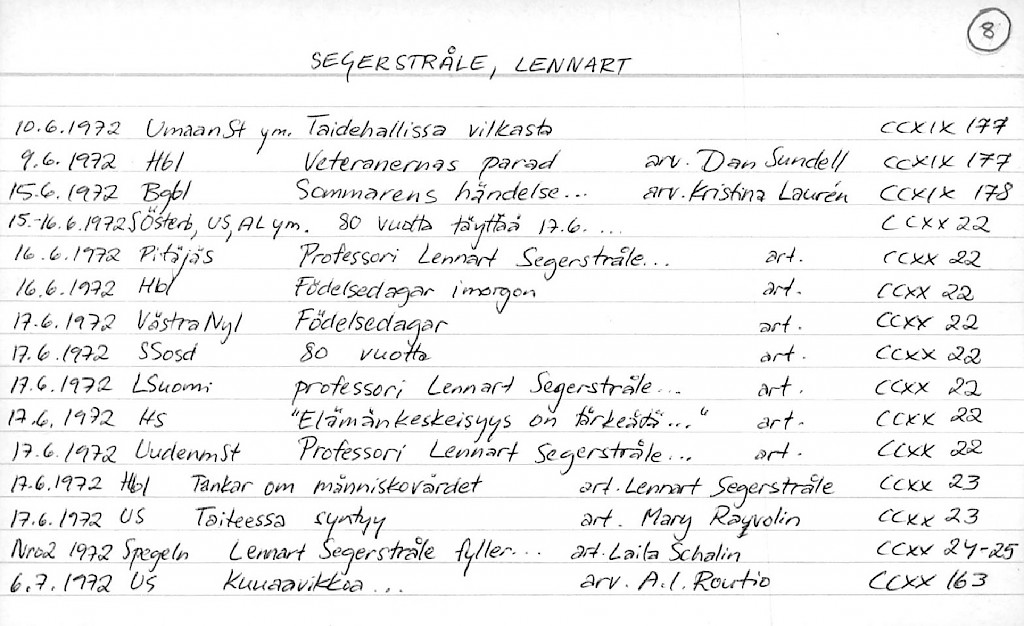 8
SEGERSTRÅLE, LENNART
10.6.1972 UmaanSt ym. Taidehallissa vilkasta CCXIX 177
9.6.1972 Hbl Veteranernas parad arv. Dan Sundell CCXIX 177
15.6.1972 Bgbl Sommarens händelse... arv. Kristina Laurén CCXIX 178
15.-16.6.1972 SÖsterb, US, AL ym. 80 vuotta täyttää 17.6. ... CCXX 22
16.6.1972 Pitäjäs Professori Lennart Segerstråle... art. CCXX 22
16.6.1972 Hbl Födelsedagar imorgon art. CCXX 22
17.6.1972 VästraNyl Födelsedagar art. CCXX 22
17.6.1972 SSosd 80 vuotta art. CCXX 22
17.6.1972 LSuomi professori Lennart Segerstråle... art. CCXX 22
17.6.1972 HS "Elämänkeskeisyys on tärkeätä..." art. CCXX 22
17.6.1972 UudenmSt Professori Lennart Segerstråle... art. CCXX 22
17.6.1972 Hbl Tankar om människovärdet art. Lennart Segerstråle CCXX 23
17.6.1972 US Taiteessa syntyy art. Mary Rayvolin CCXX 23
Nro2 1972 Spegeln Lennart Segerstråle fyller... art. Laila Schalin CCXX 24-25
6.7.1972 US Kuuaavikkoa... arv. A.I. Routio CCXX 163